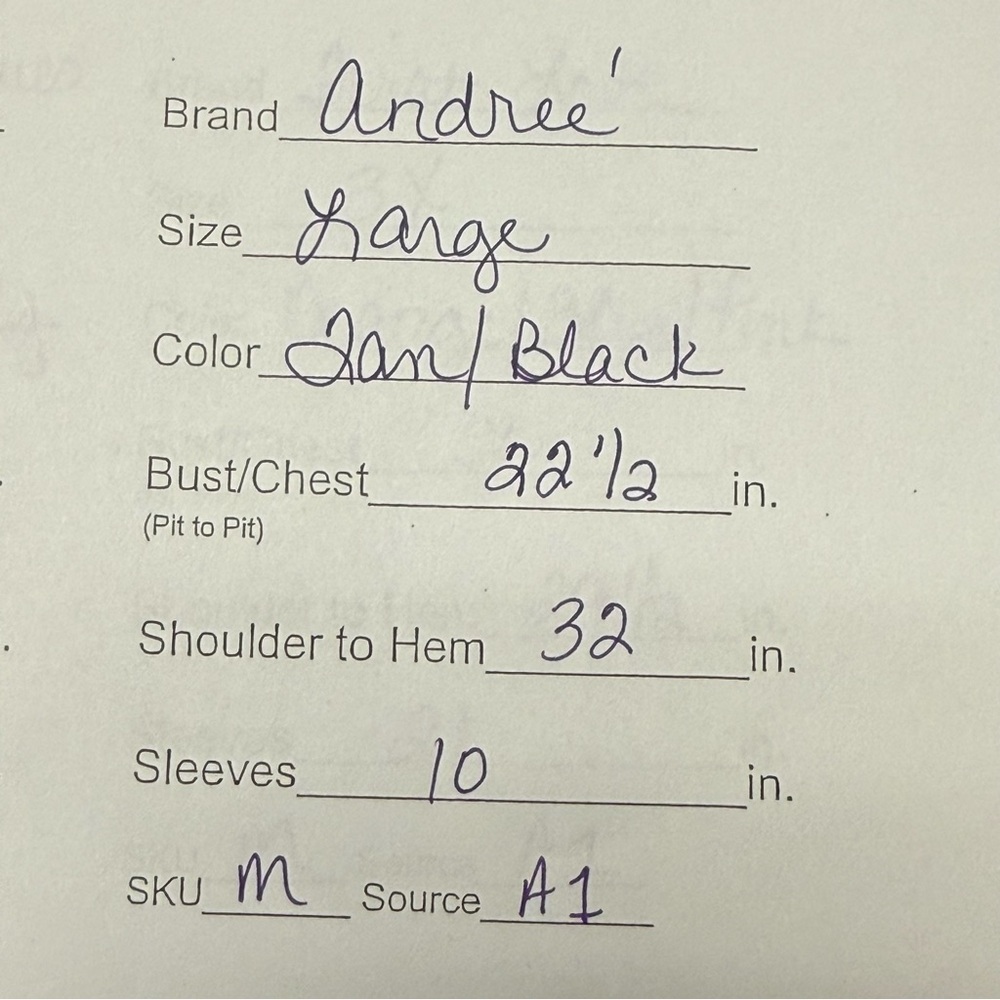 Brand Andreé
Size Large
Color Tan/Black
Bust/Chest 22 1/2 in.
(Pit to Pit)
Shoulder to Hem 32 in.
Sleeves 10 in.
SKU M Source A1